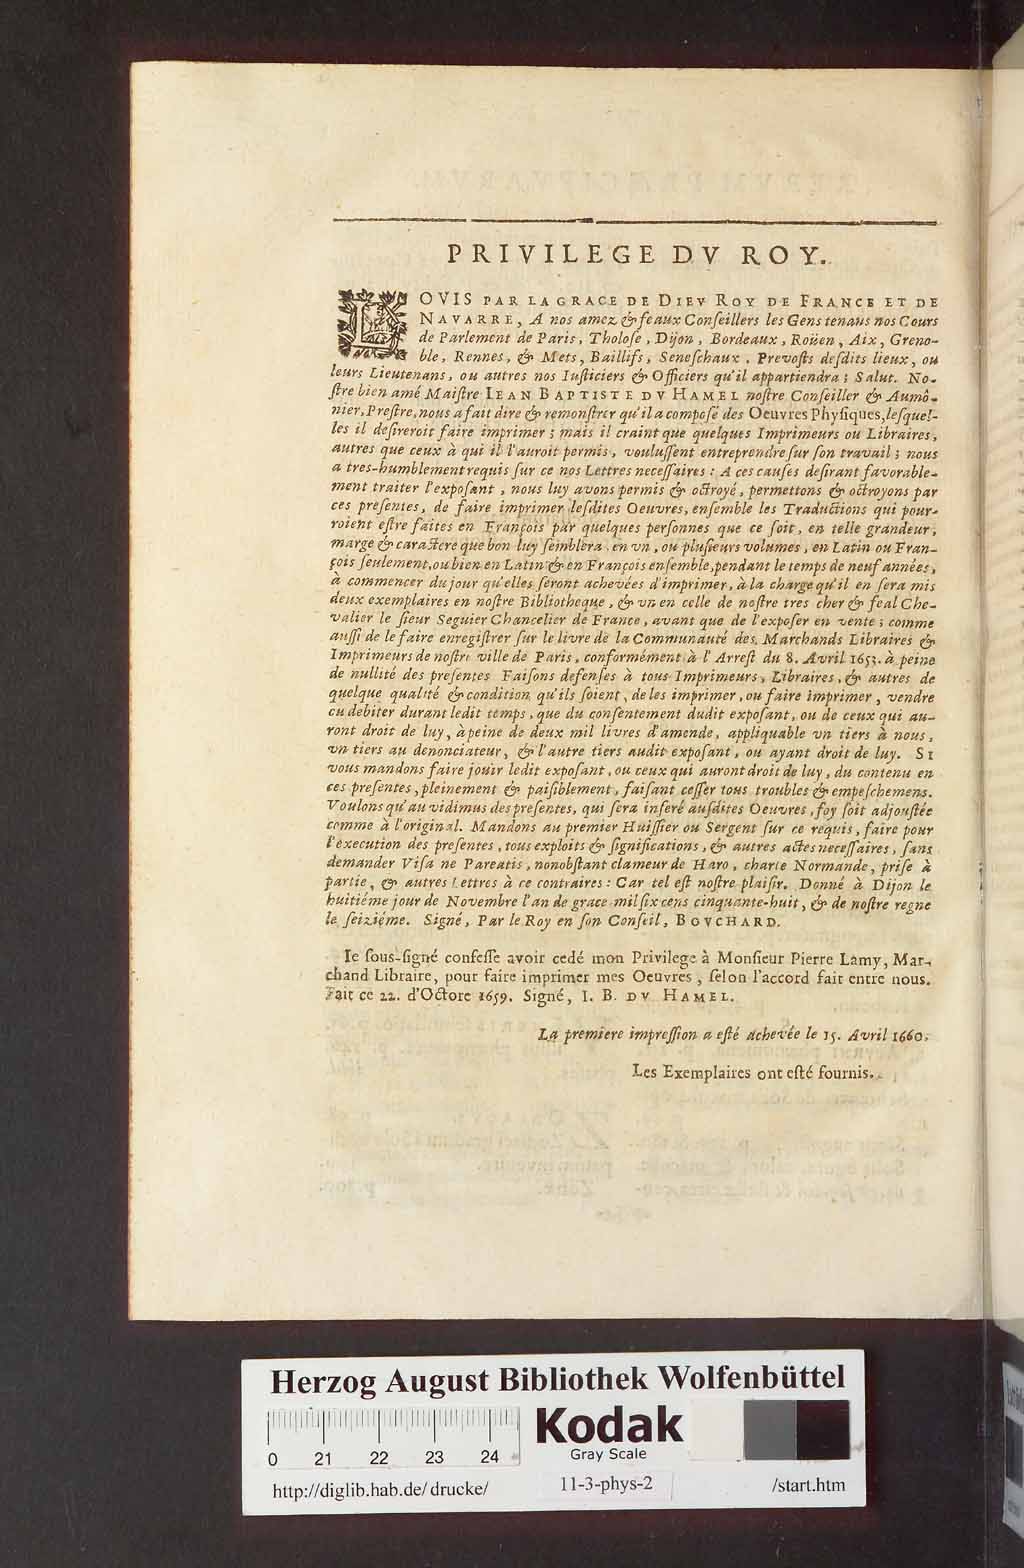 PRIVILEGE DV ROY.
LOVIS PAR LA GRACE DE DIEV ROY DE FRANCE ET DE
NAVARRE, A nos amez & feaux Conſeillers les Gens tenans nos Cours
de Parlement de Paris, Tholoſe, Dijon, Bordeaux, Roüen, Aix, Greno-
ble, Rennes, & Mets, Baillifs, Seneſchaux, Prevoſts deſdits lieux, ou
leurs Lieutenans, ou autres nos Iuſticiers & Officiers qu'il appartiendra; Salut. No-
ſtre bien amé Maiſtre IEAN BAPTISTE DV HAMEL noſtre Conſeiller & Aumô-
nier, Preſtre, nous a fait dire & remonſtrer qu'il a compoſé des Oeuvres Phyſiques, leſquel-
les il deſireroit faire imprimer; mais il craint que quelques Imprimeurs ou Libraires,
autres que ceux à qui il l'auroit permis, vouluſſent entreprendre ſur ſon travail; nous
a tres-humblement requis ſur ce nos Lettres neceſſaires: A ces cauſes deſirant favorable-
ment traiter l'expoſant, nous luy avons permis & octroyé, permettons & octroyons par
ces preſentes, de faire imprimer leſdites Oeuvres, enſemble les Traductions qui pour-
roient eſtre faites en François par quelques perſonnes que ce ſoit, en telle grandeur,
marge & caractere que bon luy ſemblera, en vn, ou pluſieurs volumes, en Latin ou Fran-
çois ſeulement, ou bien en Latin & en François enſemble, pendant le temps de neuf années,
à commencer du jour qu'elles ſeront achevées d'imprimer, à la charge qu'il en ſera mis
deux exemplaires en noſtre Bibliotheque, & vn en celle de noſtre tres cher & feal Che-
valier le ſieur Seguier Chancelier de France, avant que de l'expoſer en vente; comme
auſſi de le faire enregiſtrer ſur le livre de la Communauté des Marchands Libraires &
Imprimeurs de noſtre ville de Paris, conformément à l'Arreſt du 8. Avril 1653. à peine
de nullité des preſentes Faiſons defenſes à tous Imprimeurs, Libraires, & autres de
quelque qualité & condition qu'ils ſoient, de les imprimer, ou faire imprimer, vendre
cu debiter durant ledit temps, que du conſentement dudit expoſant, ou de ceux qui au-
ront droit de luy, à peine de deux mil livres d'amende, appliquable vn tiers à nous,
vn tiers au denonciateur, & l'autre tiers audit expoſant, ou ayant droit de luy. SI
vous mandons faire jouir ledit expoſant, ou ceux qui auront droit de luy, du contenu en
ces preſentes, pleinement & paiſiblement, faiſant ceſſer tous troubles & empeſchemens.
Voulons qu'au vidimus des preſentes, qui ſera inſeré auſdites Oeuvres, foy ſoit adjouſtée
comme à l'original. Mandons au premier Huiſſier ou Sergent ſur ce requis, faire pour
l'execution des preſentes, tous exploits & ſignifications, & autres actes neceſſaires, ſans
demander Viſa ne Pareatis, nonobſtant clameur de Haro, charte Normande, priſe à
partie, & autres Lettres à ce contraires: Car tel eſt noſtre plaiſir. Donné à Dijon le
huitiéme jour de Novembre l'an de grace mil ſix cens cinquante-huit, & de noſtre regne
le ſeiziéme. Signé, Par le Roy en ſon Conſeil, BOVCHARD.
Ie ſous-ſigné confeſſe avoir cedé mon Privilege à Monſieur Pierre Lamy, Mar-
chand Libraire, pour faire imprimer mes Oeuvres, ſelon l'accord fait entre nous.
Fait ce 22. d'Octore 1659. Signé, I. B. DV HAMEL.
La premiere impreſſion a eſté achevée le 15. Avril 1660.
Les Exemplaires ont eſté fournis.
Herzog August Bibliothek Wolfenbüttel
Kodak
Gray Scale
0 21 22 23 24
http://diglib.hab.de/drucke/ 11-3-phys-2 /start.htm